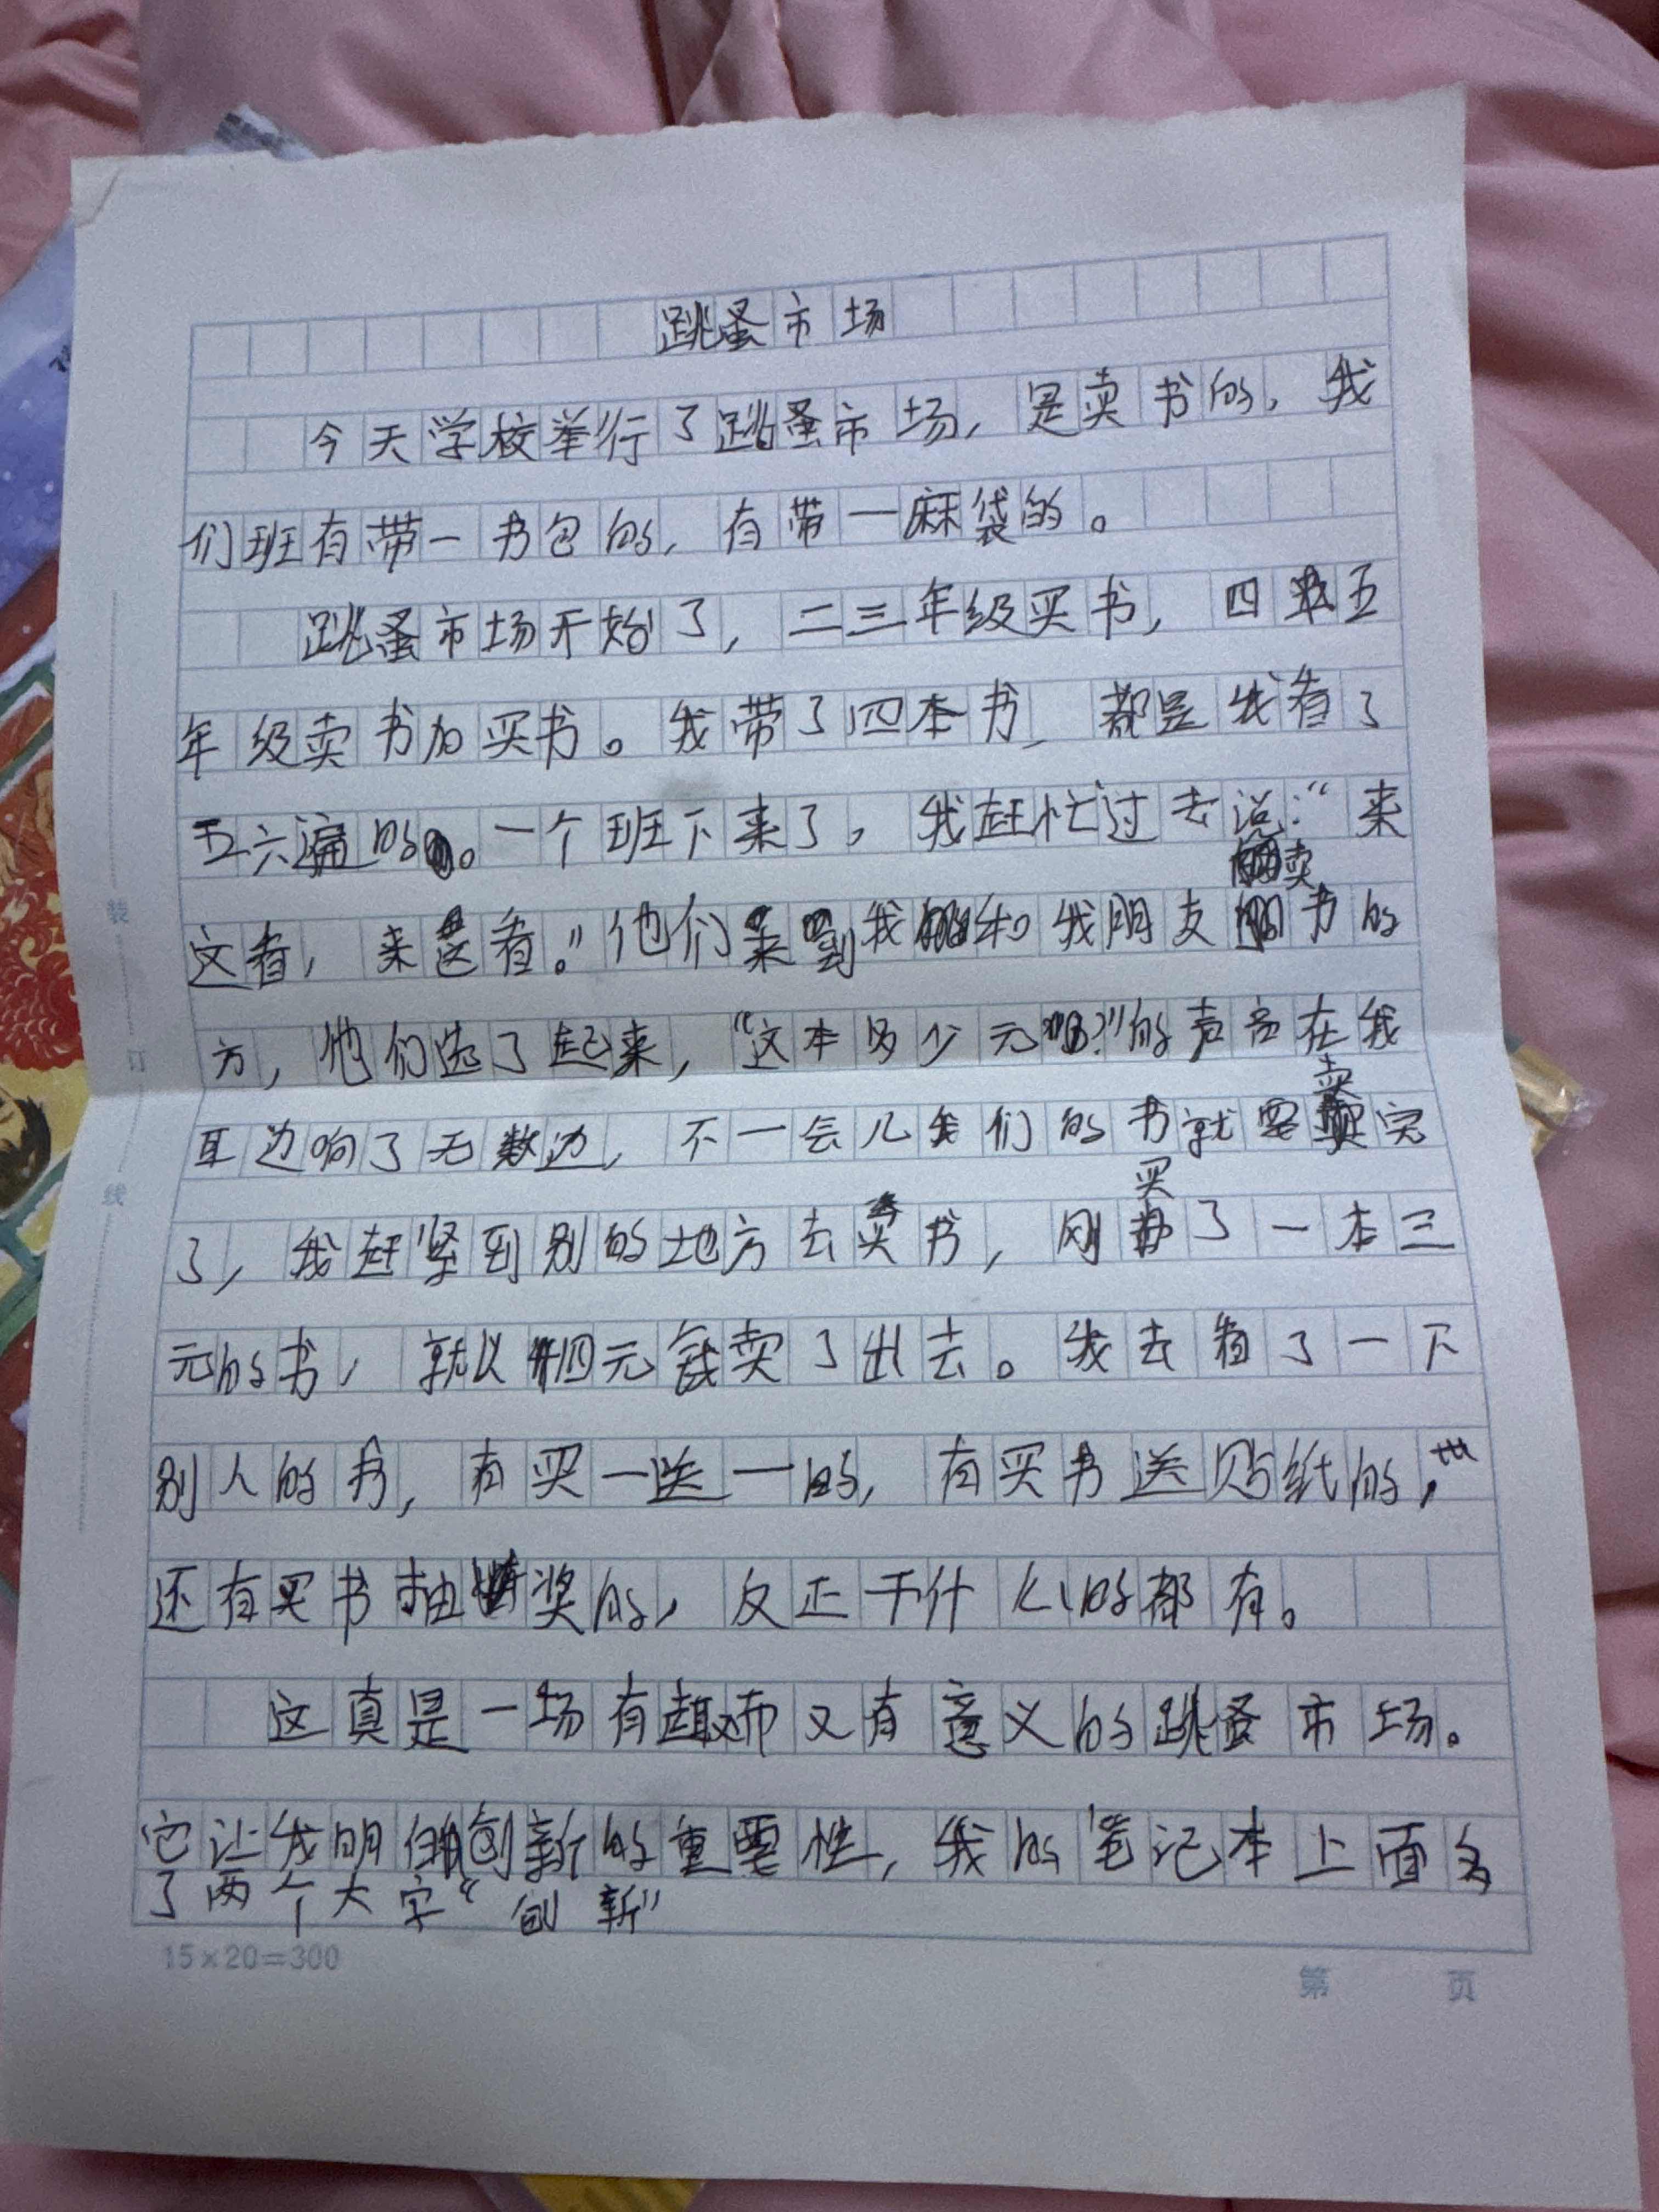 跳蚤市场
今天学校举行了跳蚤市场，是卖书的，我
们班有带一书包的，有带一麻袋的。
跳蚤市场开始了，二三年级买书，四五
年级卖书加买书。我带了四本书，都是我看了
五六遍的。一个班下来了，我赶忙过去说：“来
这看，来这看。”他们来到我和我朋友卖书的
方，他们选了起来，“这本多少元呢？”的声音在我
耳边响了无数边，不一会儿我们的书就要卖完
了，我赶紧到别的地方去卖书，刚买了一本三
元的书，就以四元钱卖了出去。我去看了一下
别人的书，有买一送一的，有买书送贴纸的，
还有买书抽奖的，反正干什么的都有。
这真是一场有趣而又有意义的跳蚤市场。
它让我明创新的重要性，我的笔记本上面多
了两个大字“创新”
装
订
线
15×20=300
第 页